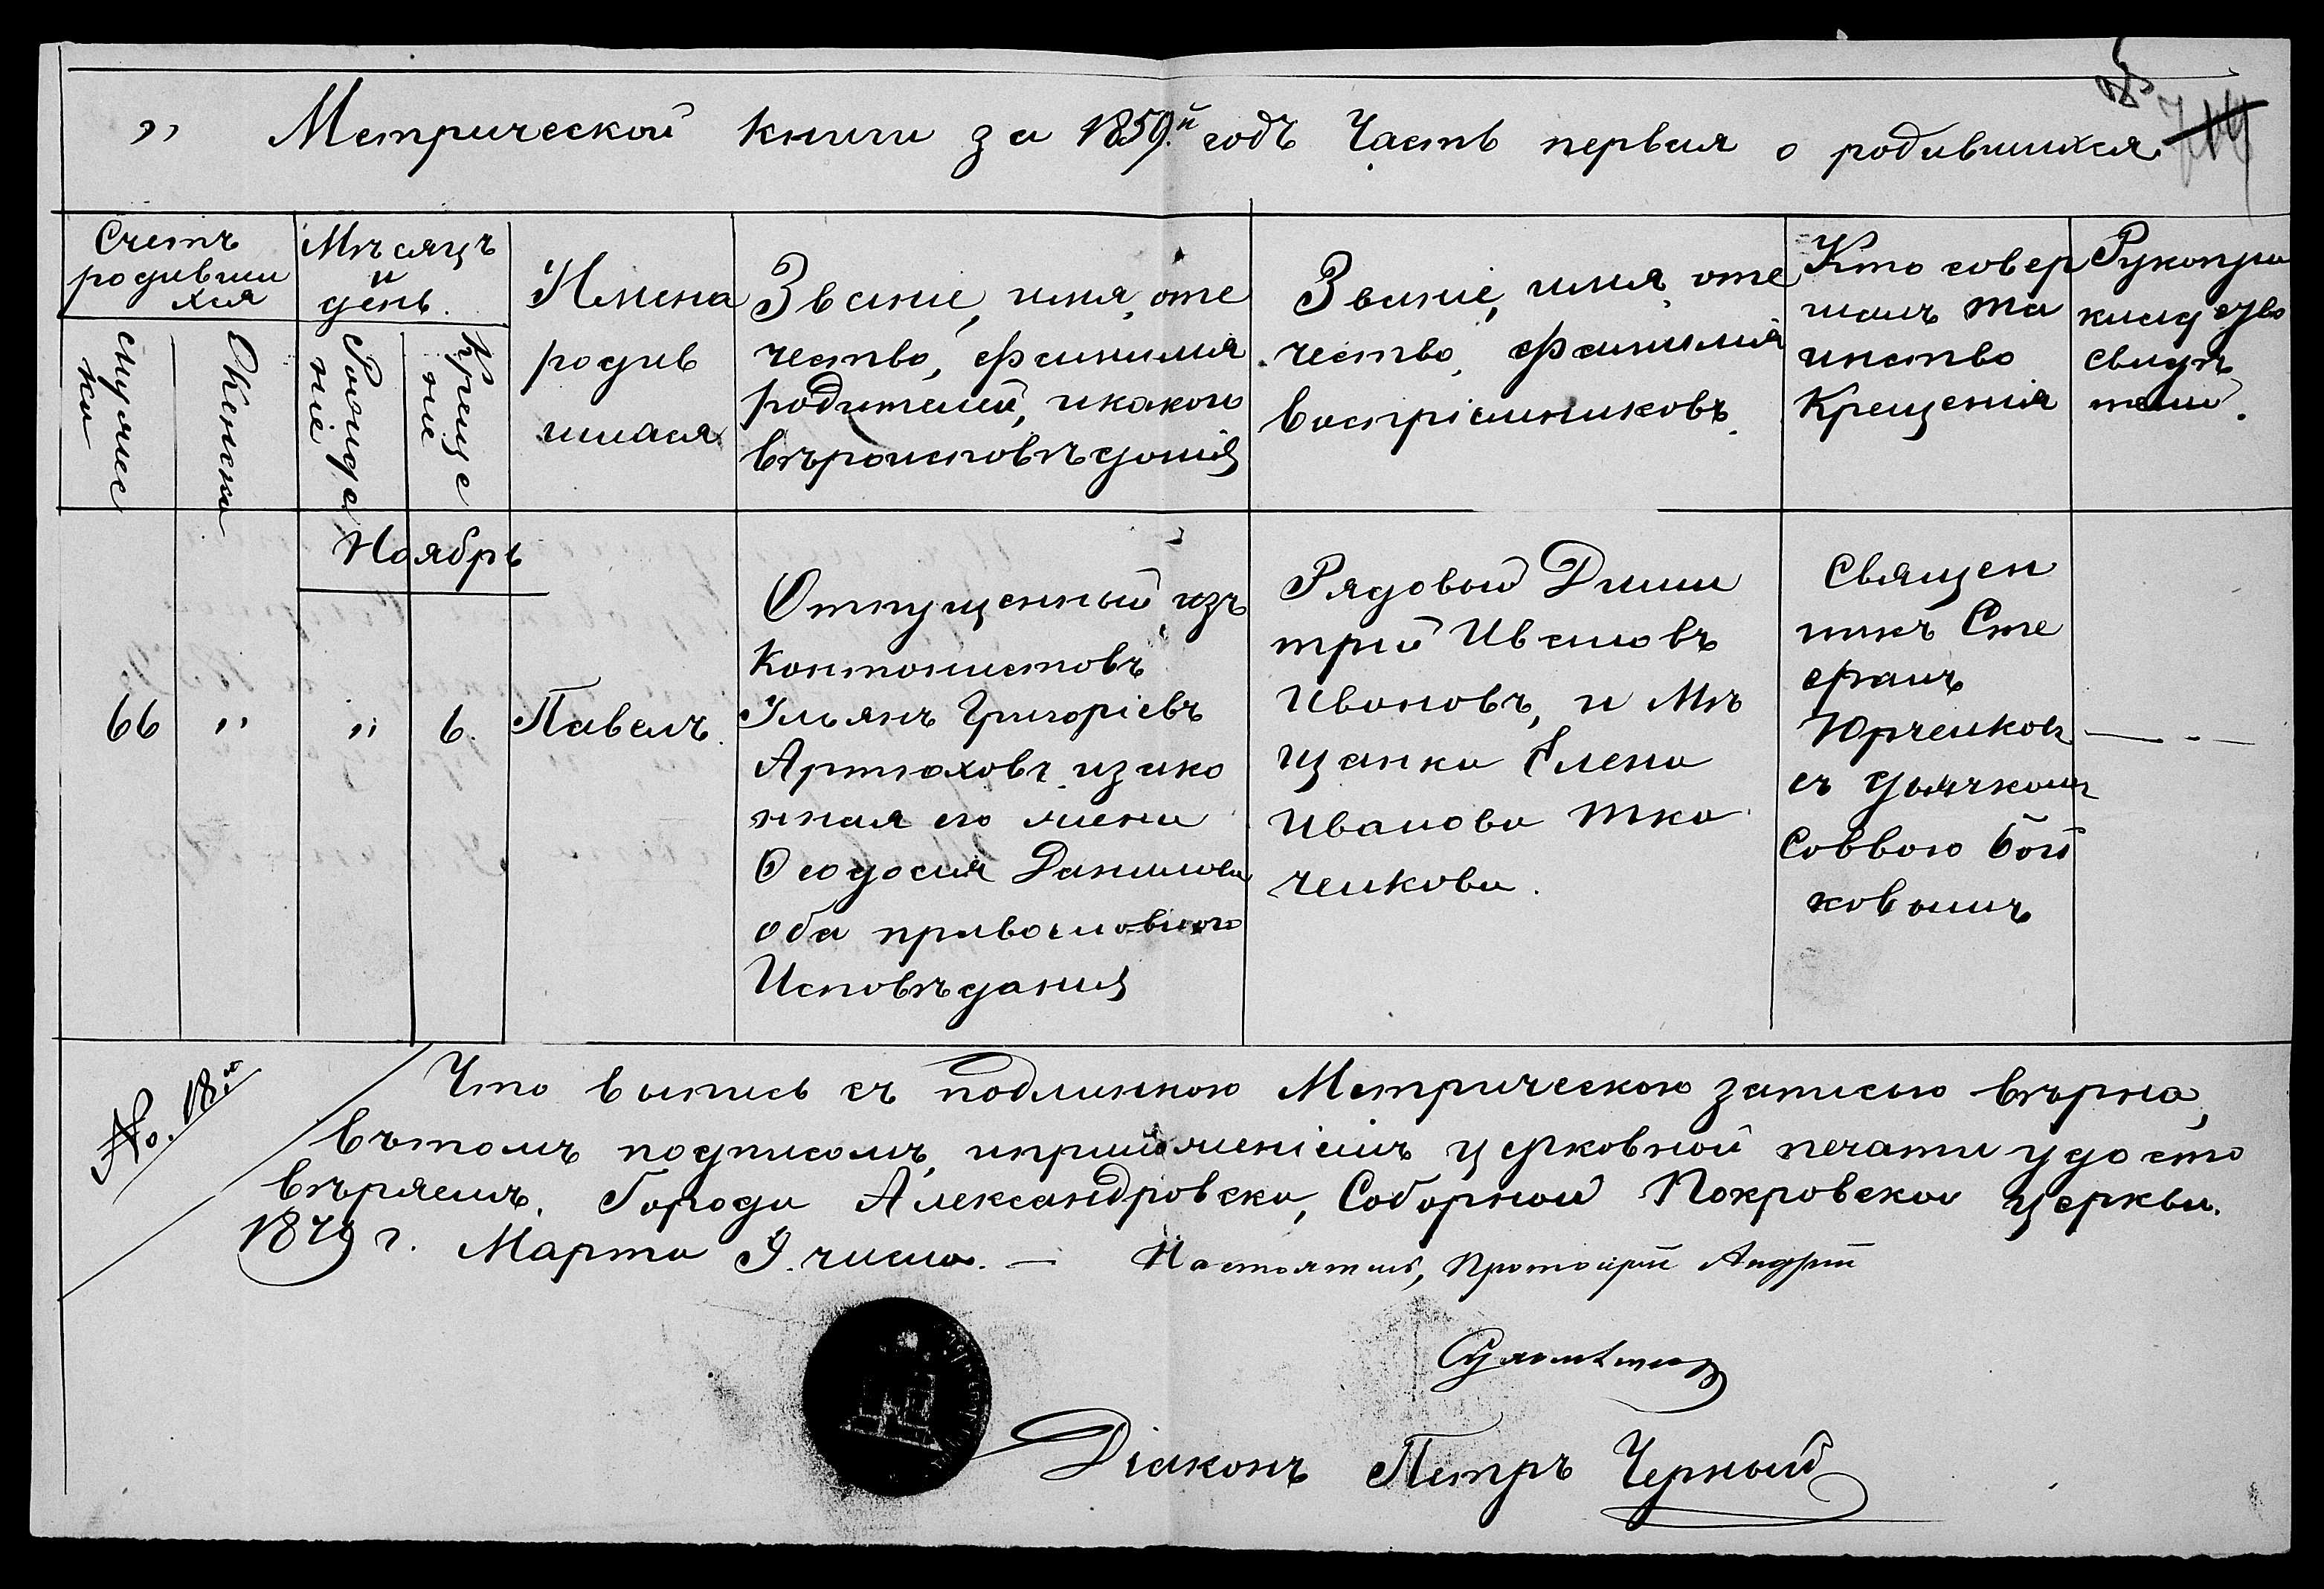 „ Метрической книги за 1859.й годъ Часть первая о родившихся
Счетъ
родивши
хся
Мѣсяцъ
и
день.
мужеска
Женска
Рожденіе
Крещение
Имена
родив
шихся
Званіе, имя, оте
чество, фамилия
родителей, и какого
вѣроисповѣдания
Званіе, имя, оте
чество, фамилия
воспріемниковъ.
Кто совер
шалъ та
инство
Крещения
Рукопри
кладство
свидѣ
телей.
Ноябрь
66
„
„
6.
Павелъ.
Отпущенный изъ
Контонистовъ
Ильянъ Григоріевъ
Артюховъ, и зако
нная его жена
Феодосия Данилова
оба православного
Исповѣдания
Рядовой Дими
трий Ивановъ
Ивановъ, и Мѣ
щанка Елена
Иванова Тка
ченкова.
Священ
никъ Сте
фанъ
Юрченковъ
съ дьячкомъ
Соввою Бой
ковымъ
No. 18.
Что выпись съ подлинною Метрическою записью вѣрна,
въ томъ подписомъ, и приложеніемъ церковной печати удосто
вѣряемъ. Города Александровска, Соборной Покровской церкви.
1879 г. Марта 9. числа. — Настоятель, Протоиерей Андрей
Діаконъ Петръ Черный